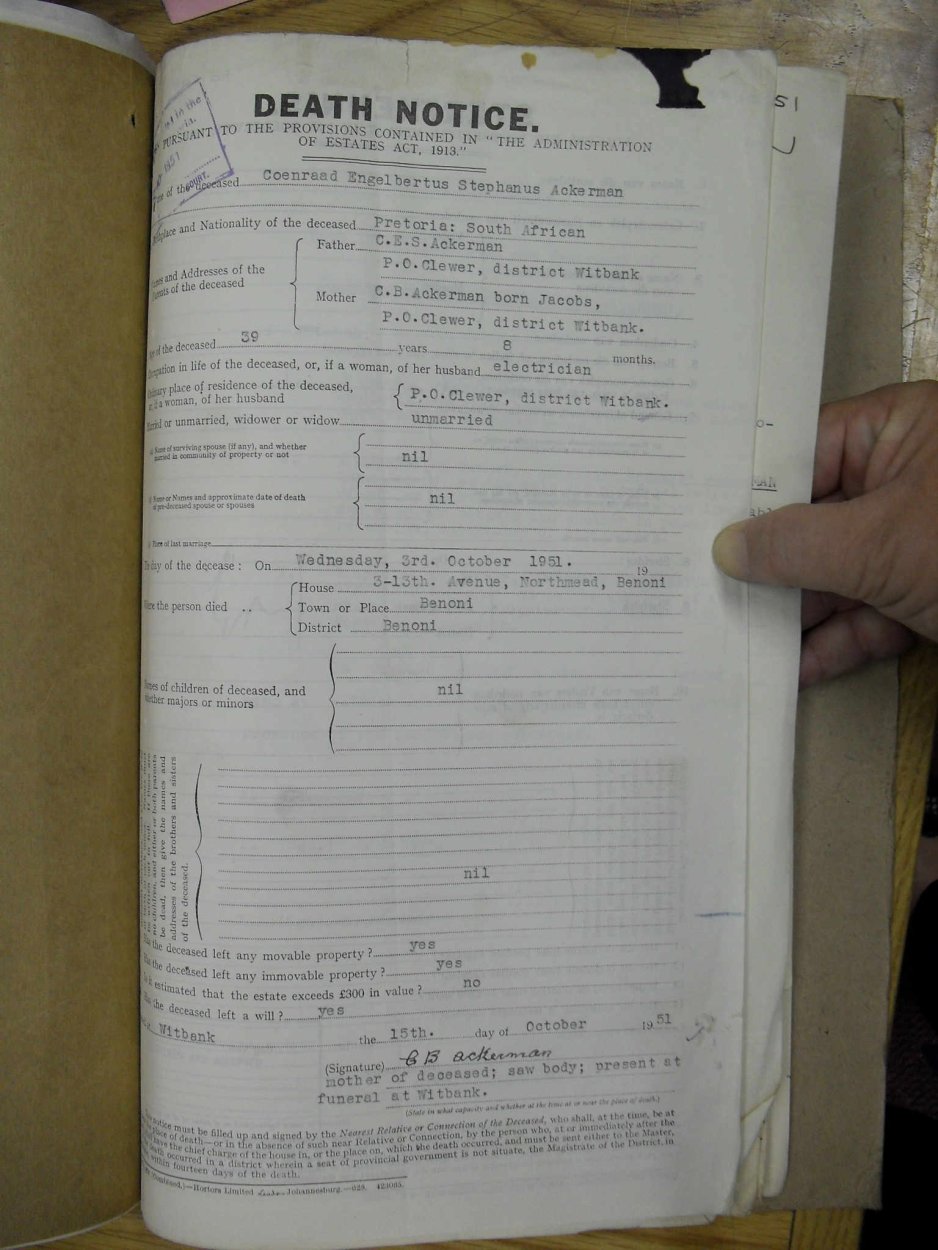 DEATH NOTICE.
PURSUANT TO THE PROVISIONS CONTAINED IN "THE ADMINISTRATION
OF ESTATES ACT, 1913."
in the
1951
COURT.
of the deceased Coenraad Engelbertus Stephanus Ackerman
and Nationality of the deceased Pretoria: South African
Father C.E.S.Ackerman
P.O.Clewer, district Witbank
and Addresses of the
of the deceased
Mother C.B.Ackerman born Jacobs,
P.O.Clewer, district Witbank.
of the deceased 39 years 8 months.
in life of the deceased, or, if a woman, of her husband electrician
place of residence of the deceased,
if a woman, of her husband P.O.Clewer, district Witbank.
or unmarried, widower or widow unmarried
Name of surviving spouse (if any), and whether
married in community of property or not nil
Name or Names and approximate date of death
of pre-deceased spouse or spouses nil
Place of last marriage
day of the decease: On Wednesday, 3rd. October 1951. 19
House 3-13th. Avenue, Northmead, Benoni
the person died .. Town or Place Benoni
District Benoni
of children of deceased, and
majors or minors nil
no children, and either or both parents
be dead, then give the names and
addresses of the brothers and sisters
of the deceased.
nil
the deceased left any movable property? yes
the deceased left any immovable property? yes
estimated that the estate exceeds £300 in value? no
the deceased left a will? yes
Witbank the 15th. day of October 1951
(Signature) C B Ackerman
mother of deceased; saw body; present at
funeral at Witbank.
(State in what capacity and whether at the time at or near the place of death.)
notice must be filled up and signed by the Nearest Relative or Connection of the Deceased, who shall, at the time, be at
place of death—or in the absence of such near Relative or Connection, by the person who, at or immediately after the
have the chief charge of the house in, or the place on, which the death occurred, and must be sent either to the Master,
occurred in a district wherein a seat of provincial government is not situate, the Magistrate of the District, in
within fourteen days of the death.
—Hortors Limited Johannesburg.—629.
51